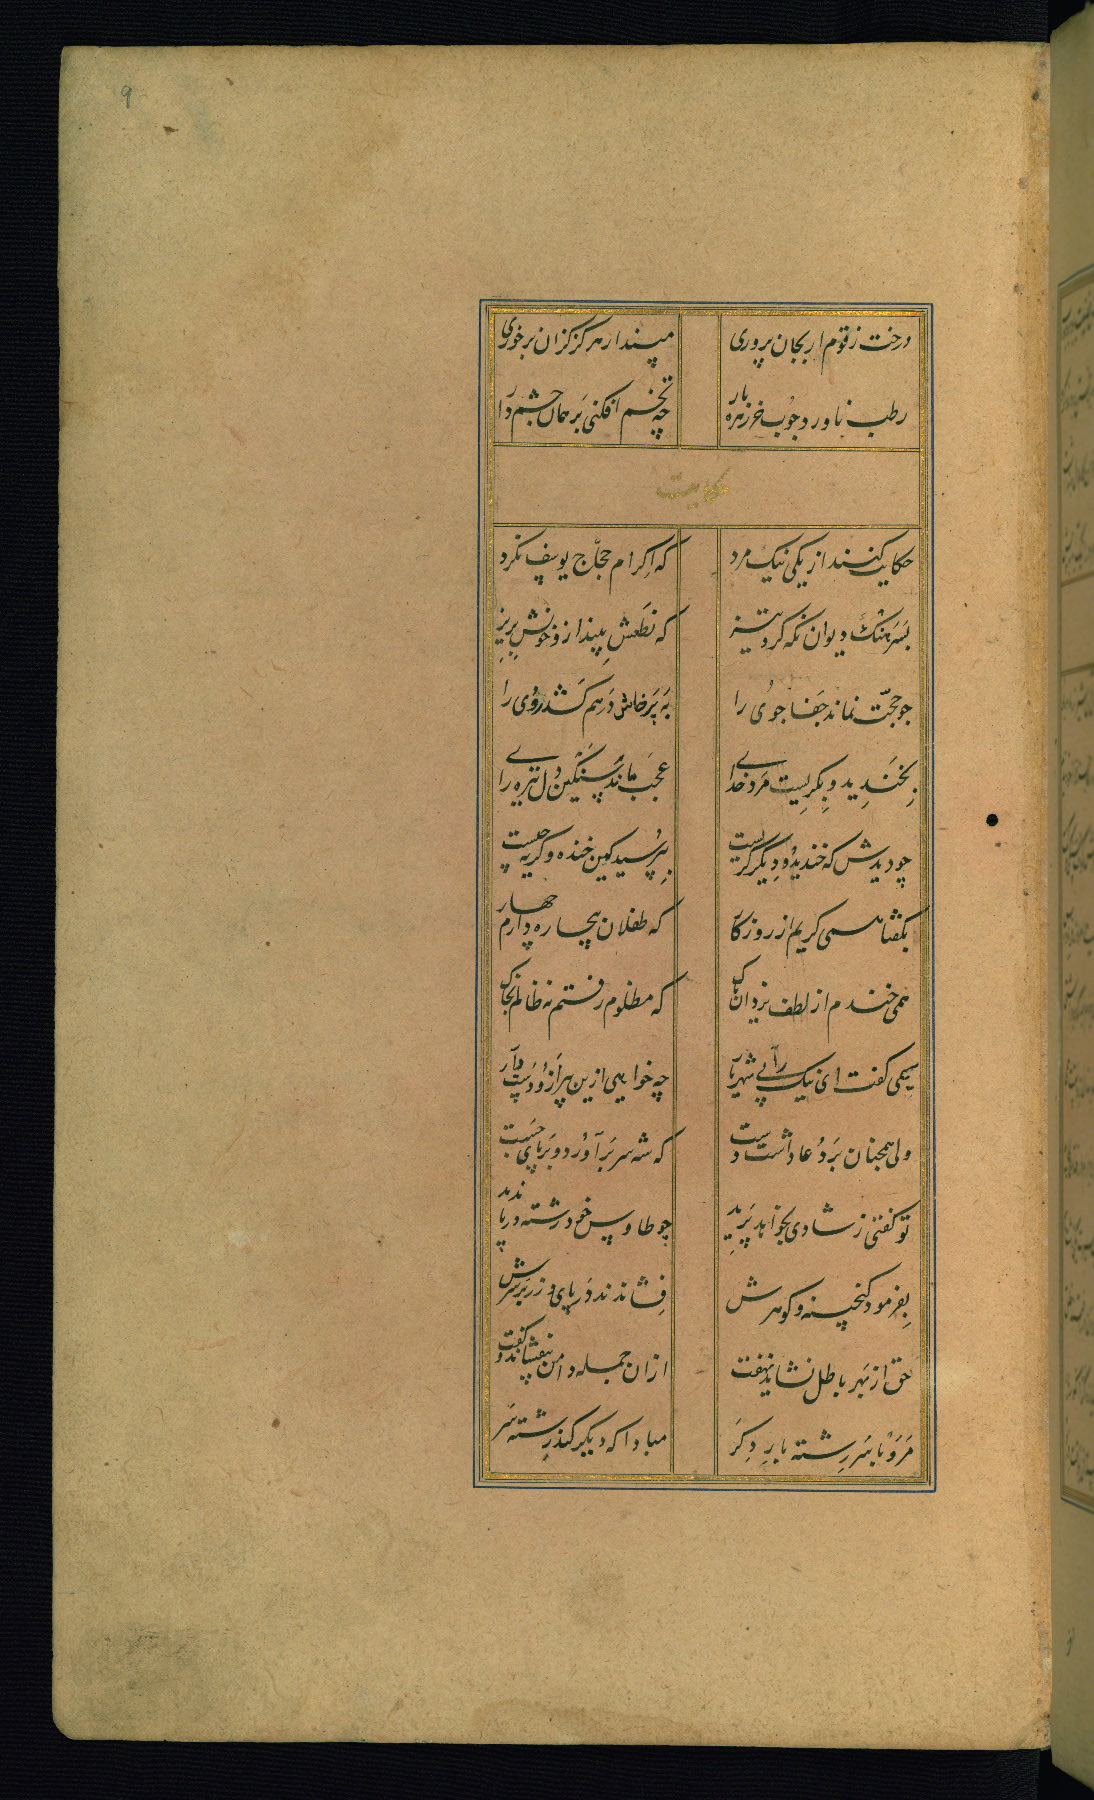 ۹
درخت زقوم ار بجان پروری مپندار هرگز کزان برخوری
رطب ناورد چوب خرزهره بار چه تخم افکنی بر همان چشم دار
حکایت
حکایت کنند از یکی نیک مرد که اکرام حجّاج یوسف نکرد
بسرهنگ دیوان نکه کرد تیز که نطعش بینداز و خونش بریز
چو حجّت نماند جفا جوی را به پرخاش درهم کشد روی را
بخندید و بکریست مرد خدای عجب ماند سنکین دل تیره رای
چو دیدش که خندید و دیکر کریست بپرسید کین خنده و کریه چیست
بکفتا همی کریم از روزکار که طفلان بیچاره دارم چهار
همی خندم از لطف یزدان پاک که مظلوم رفتم نه ظالم بخاک
یکی کفت ای نیک رای شهریار چه خواهی ازین پیر ازو دست دار
ولی همچنان بر دعا داشت دست که شه سر برآورد و بر پای جست
تو کفتی ز شادی بخواهد پرید چو طاوس خود رشته در پا ندید
بفرمود کنجینه و کوهرش فشاندند در پای و زر بر سرش
حق از بهر باطل نشاید نهفت ازان جمله دامن بیفشاند و کفت
مرو با سر رشته بار دکر مبادا که دیکر کند رشته سر